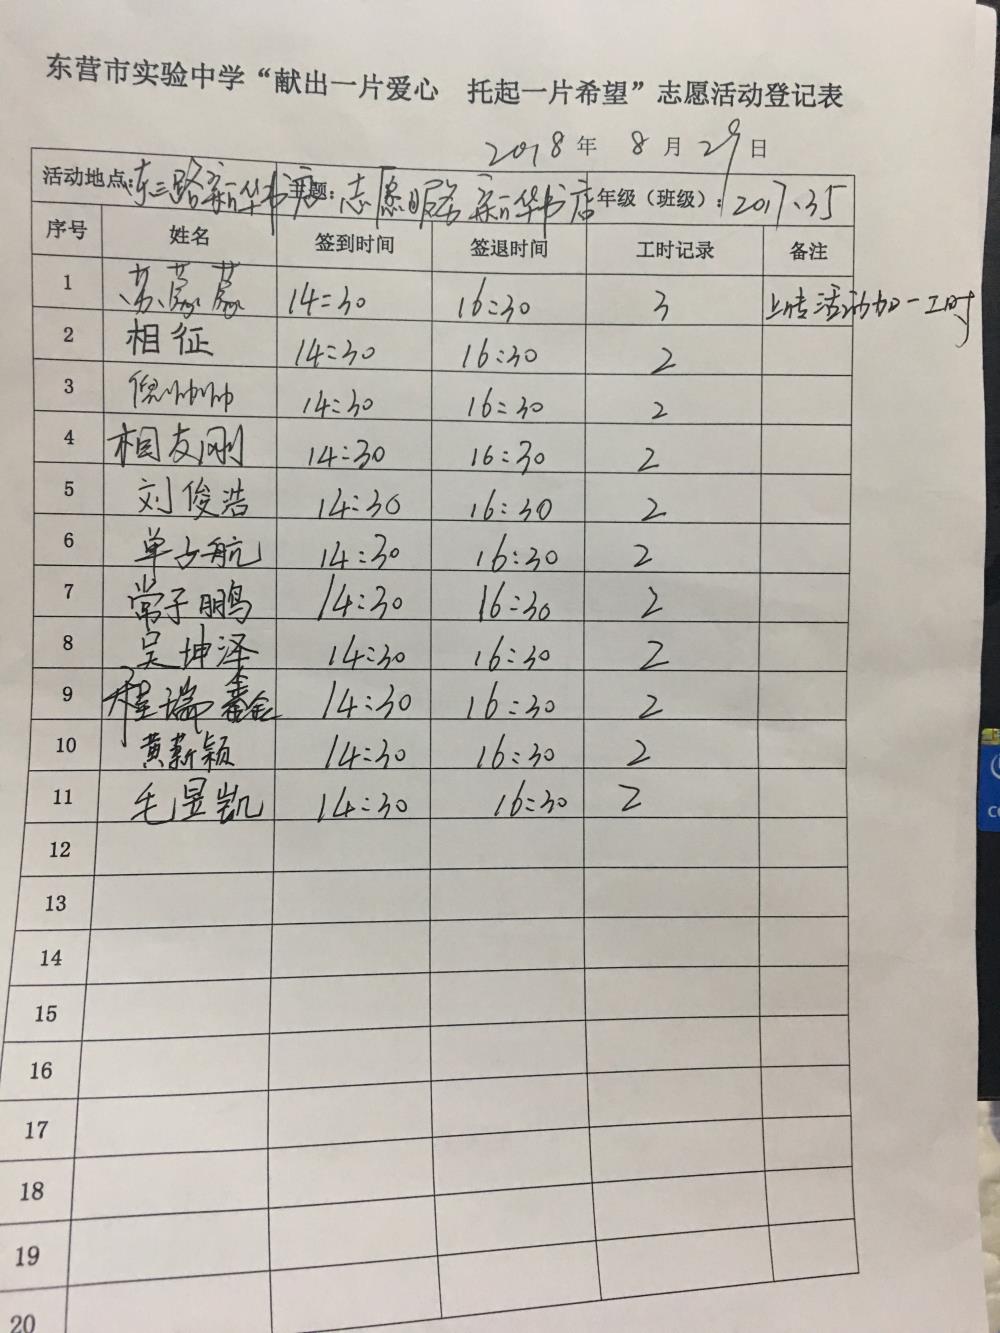 东营市实验中学“献出一片爱心 托起一片希望”志愿活动登记表
2018年 8月 29日
活动地点:东三路新华书店 主题:志愿服务新华书店 年级(班级):2017.35
序号 姓名 签到时间 签退时间 工时记录 备注
1 苏 14:30 16:30 3 上传活动加一工时
2 相征 14:30 16:30 2
3 倪帅帅 14:30 16:30 2
4 相友刚 14:30 16:30 2
5 刘俊浩 14:30 16:30 2
6 单占航 14:30 16:30 2
7 常子鹏 14:30 16:30 2
8 吴坤泽 14:30 16:30 2
9 程瑞鑫 14:30 16:30 2
10 黄新颖 14:30 16:30 2
11 毛昱凯 14:30 16:30 2
12
13
14
15
16
17
18
19
20